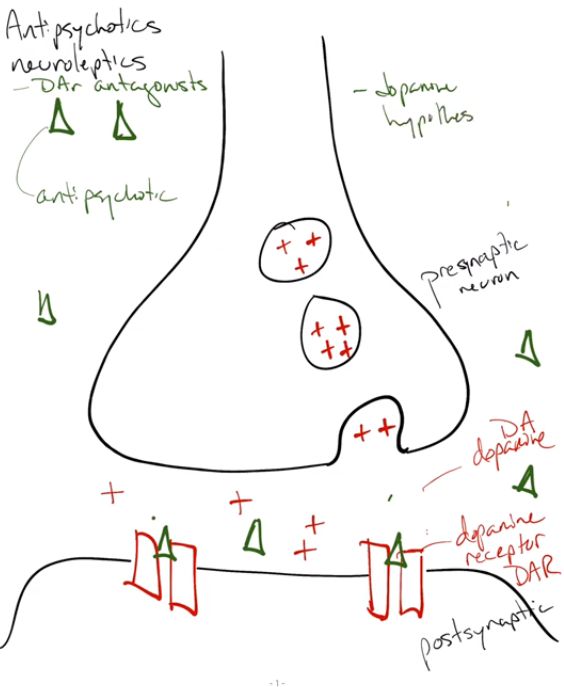 Antipsychotics
neuroleptics
- DAr antagonists
antipsychotic
- dopamine
hypothes
presynaptic
neuron
DA
dopamine
dopamine
receptor
DAR
postsynaptic
- 1 -